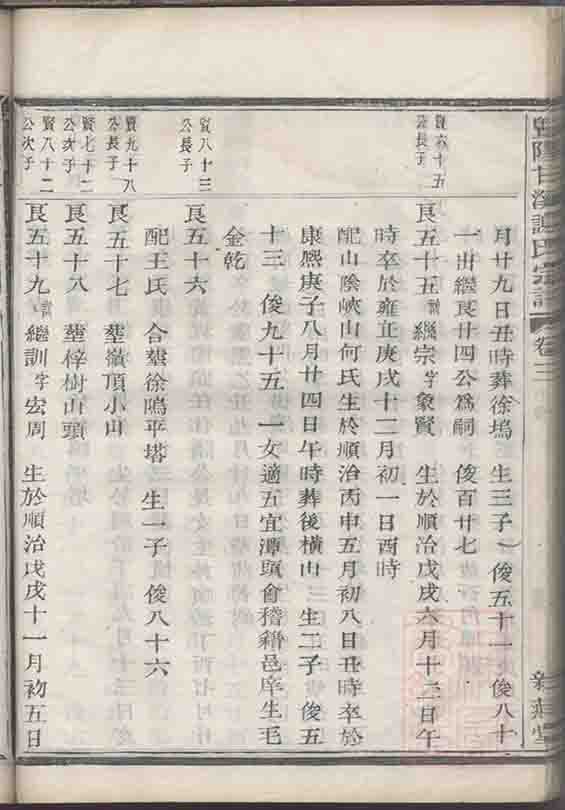 暨陽甘溪謝氏宗譜 卷三
月廿九日丑時葬徐塢 生三子 俊五十一 俊八十
一出繼良廿四公為嗣 俊百廿七
賢六十五公長子
良五十五諱繼宗字象賢 生於順治戊戌六月十二日午
時卒於雍正庚戌十二月初一日酉時
配山陰峽山何氏生於順治丙申五月初八日丑時卒於
康熙庚子八月廿四日午時葬後橫山 生二子 俊五
十三 俊九十五 一女適五宜潭頭會稽籍邑庠生毛
金乾
賢八十三公長子
良五十六
配王氏 合塟徐塢平塔 生一子 俊八十六
賢九十八公長子
良五十七 塟嶺頂小山
賢七十二公次子
良五十八 塟梓樹山頭
賢八十二公次子
良五十九諱繼訓字宏周 生於順治戊戌十一月初五日